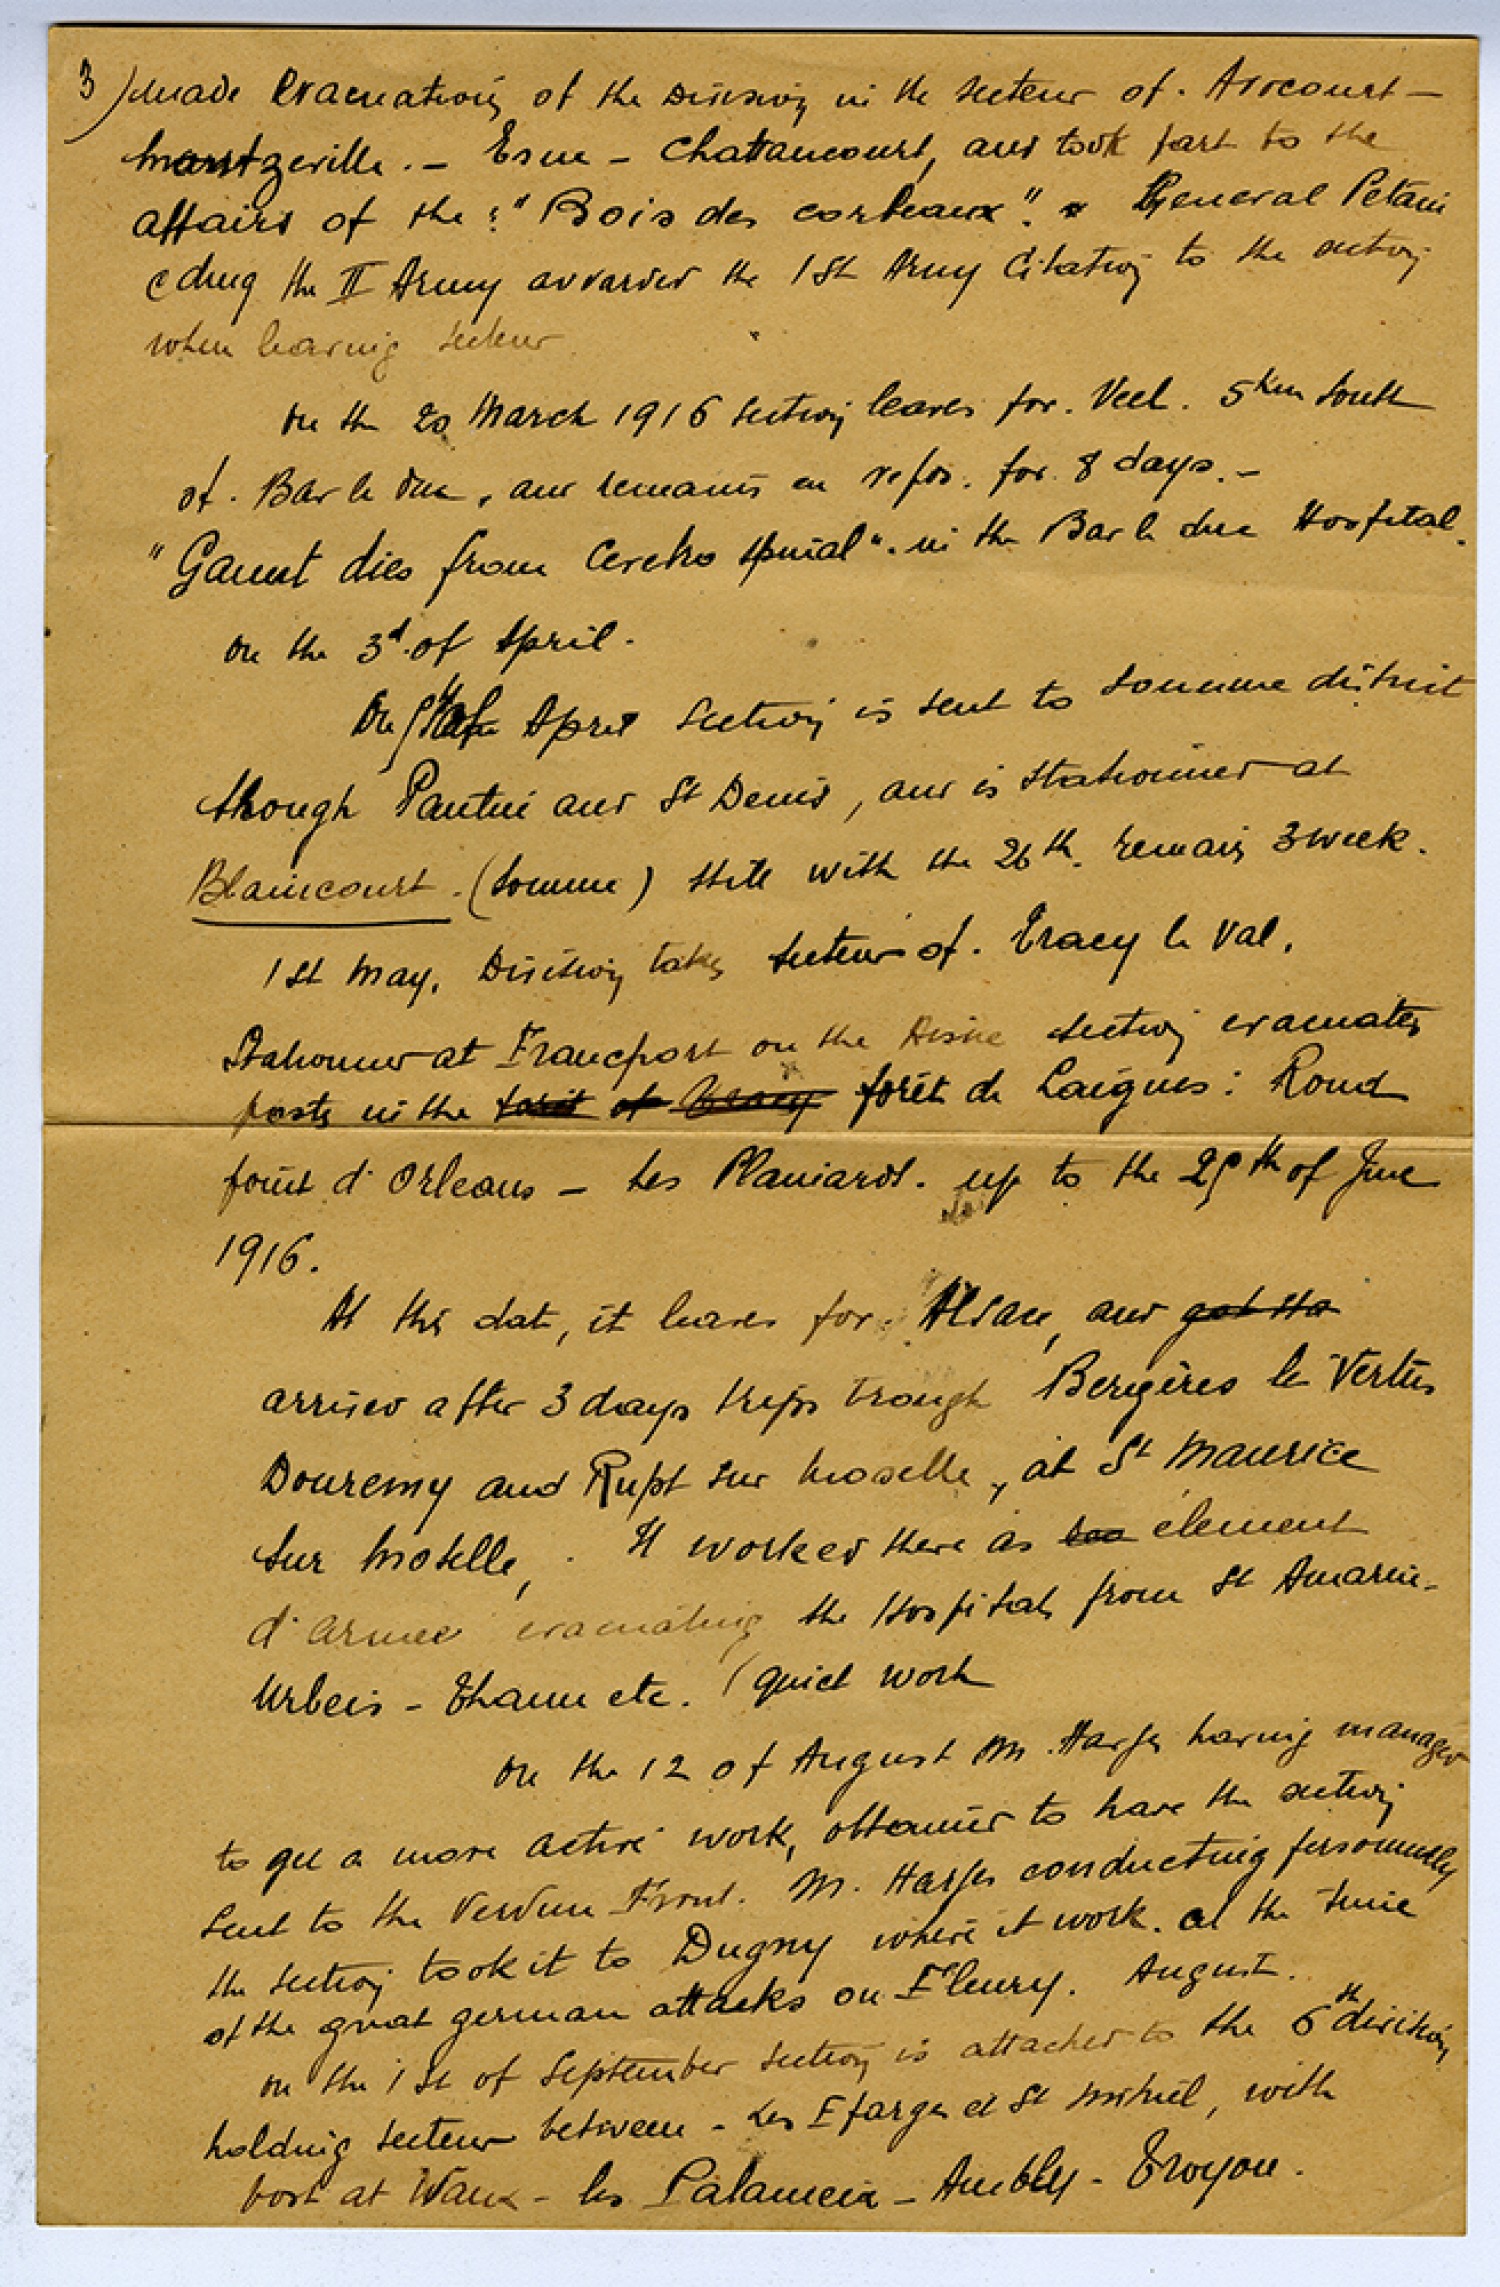 3) Made evacuation of the Division in the secteur of. Avocourt –
Marrtzeville. – Esne – Chattancourt, and took part to the
affairs of the: "Bois des corbeaux". General Petain
cding the II Army awarded the 1st Army Citation to the section
when leaving secteur.
On the 20 March 1916 section leaves for. Veel. 5 km South
of. Bar le Duc, and remains en repos. for. 8 days. –
"Gamut dies from Cerebro spinal". in the Bar le duc Hospital.
on the 3d. of April.
On April section is sent to Somme district
though Pantin and St Denis, and is stationned at
Blaincourt. (Somme) still with the 26th. remain 3 week.
1st May. Division takes secteur of. Tracy le Val.
Stationned at Francport on the Aisne section evacuates
posts in the forêt of Tracy forêt de Laigues: Rond
point d'Orleans – Les Planiards. up to the 29th of June
1916.
At this date, it leaves for. Alsace, and got to
arrived after 3 days trips trough Bergères le Vertus
Douremy and Rupt sur Moselle, at St Maurice
sur Moselle, . It worked there as élement
d'armee evacuating the Hospitals from St Amarin –
Urbeis – Thann etc. (quiet work
On the 12 of August M. Harjes having managed
to get a more active work, obtained to have the section
sent to the Verdun Front. M. Harjes conducting personnally
the section took it to Dugny where it work. at the time
of the great german attacks on Fleury. August.
on the 1st of September section is attached to the 6th division
holding secteur between – Les Eparges et St Mihiel, with
post at Vaux – les Palameix – Ambly – Troyon.